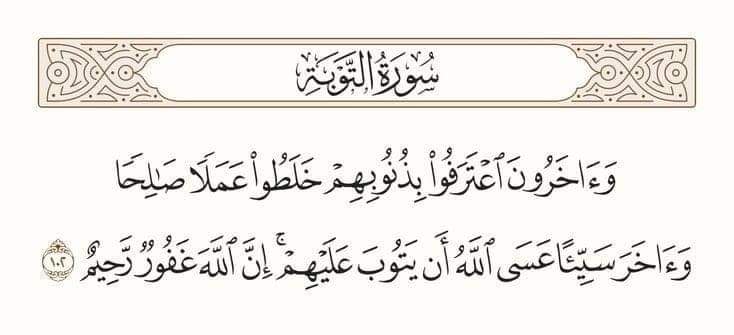 سُورَةُ التَّوۡبَةِ
وَءَاخَرُونَ ٱعۡتَرَفُواْ بِذُنُوبِهِمۡ خَلَطُواْ عَمَلٗا صَٰلِحٗا
وَءَاخَرَ سَيِّئًا عَسَى ٱللَّهُ أَن يَتُوبَ عَلَيۡهِمۡۚ إِنَّ ٱللَّهَ غَفُورٞ رَّحِيمٌ ١٠٢